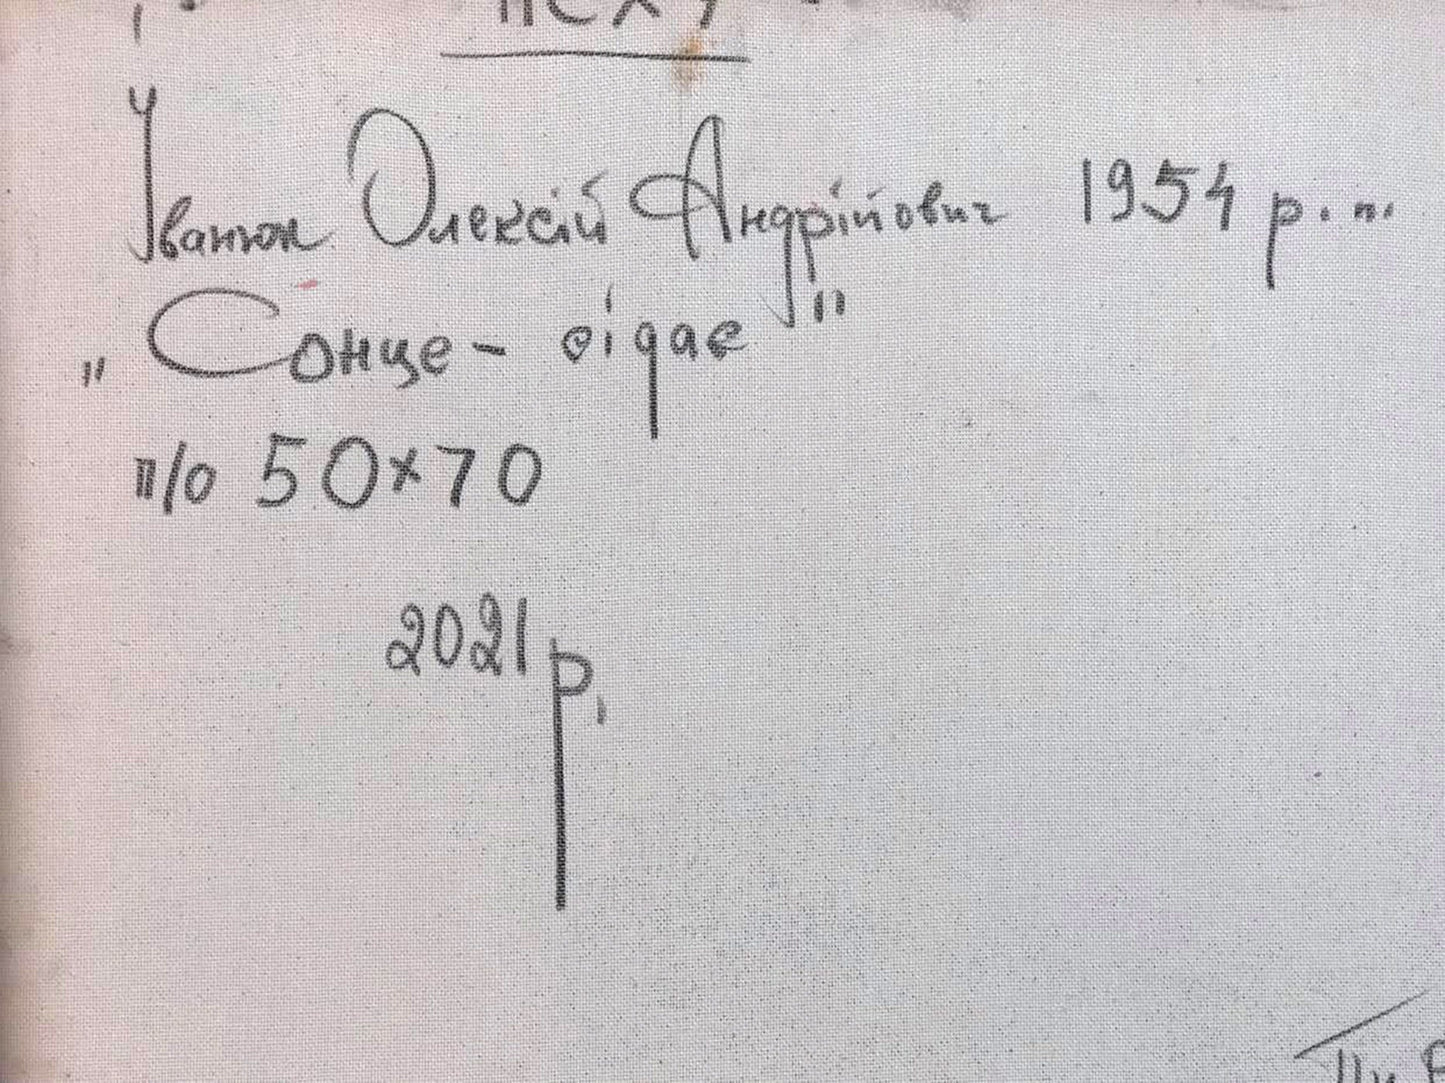 НСХУ
Іванюк Олексій Андрійович 1954 р.н.
„Сонце - сідає"
п/о 50x70
2021 р.